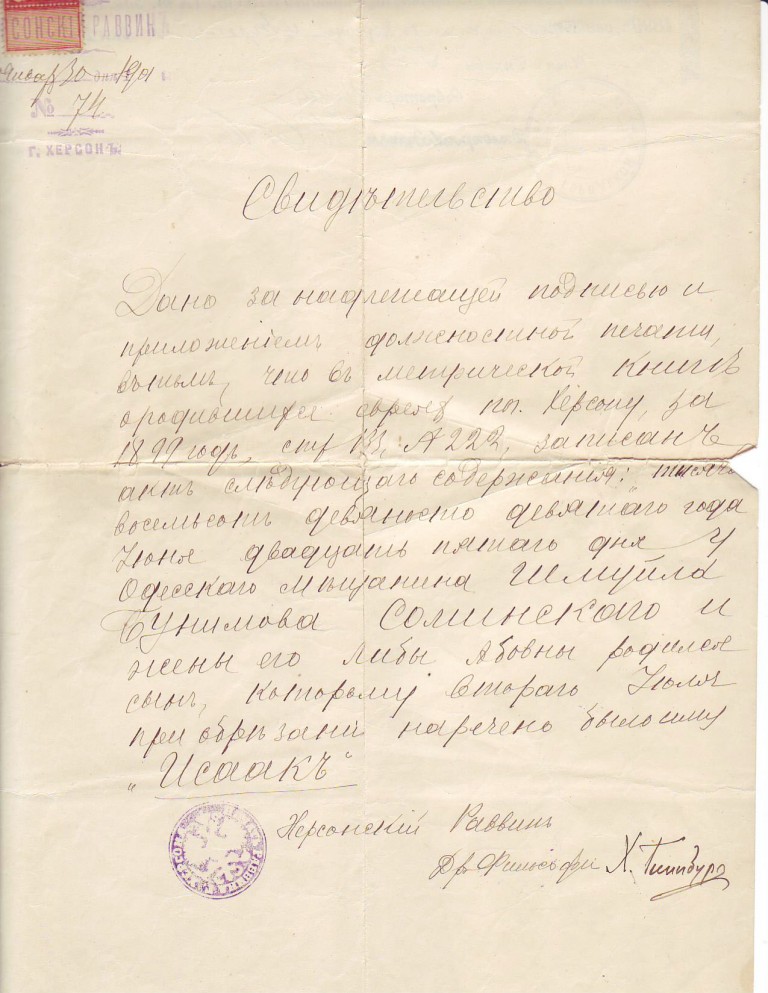 СОНСКІ РАВВИНЪ
Января 30 дня 1901
№ 74
Г. ХЕРСОНЪ
Свидѣтельство
Дано за надлежащей подписью и
приложеніемъ должностной печати,
въ томъ, что въ метрической книгѣ
о родившихся евреяхъ по г. Херсону, за
1899 годъ, стр 133, № 222, записанъ
актъ слѣдующаго содержанія: „тысяча
восемьсотъ девяносто девятаго года
Іюня двадцать пятаго дня у
Одесскаго мѣщанина Шмуйла
Бунимова Соминскаго и
жены его Либы Абовны родился
сынъ, которому втораго Іюля
при обрѣзаніи наречено было имя
„Исаакъ“
Херсонскій Раввинъ
Др Философіи Х. Гинзбург